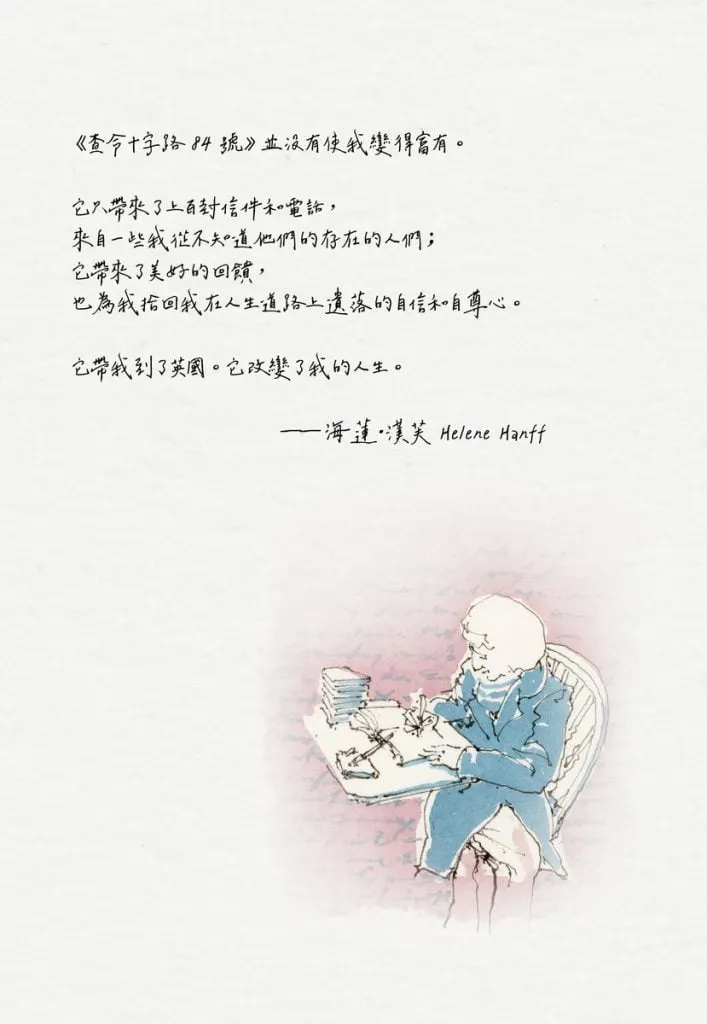 《查令十字路84號》並沒有使我變得富有。
它只帶來了上百封信件和電話，
來自一些我從不知道他們的存在的人們；
它帶來了美好的回饋，
也為我拾回我在人生道路上遺落的自信和自尊心。
它帶我到了英國。它改變了我的人生。
——海蓮·漢芙 Helene Hanff